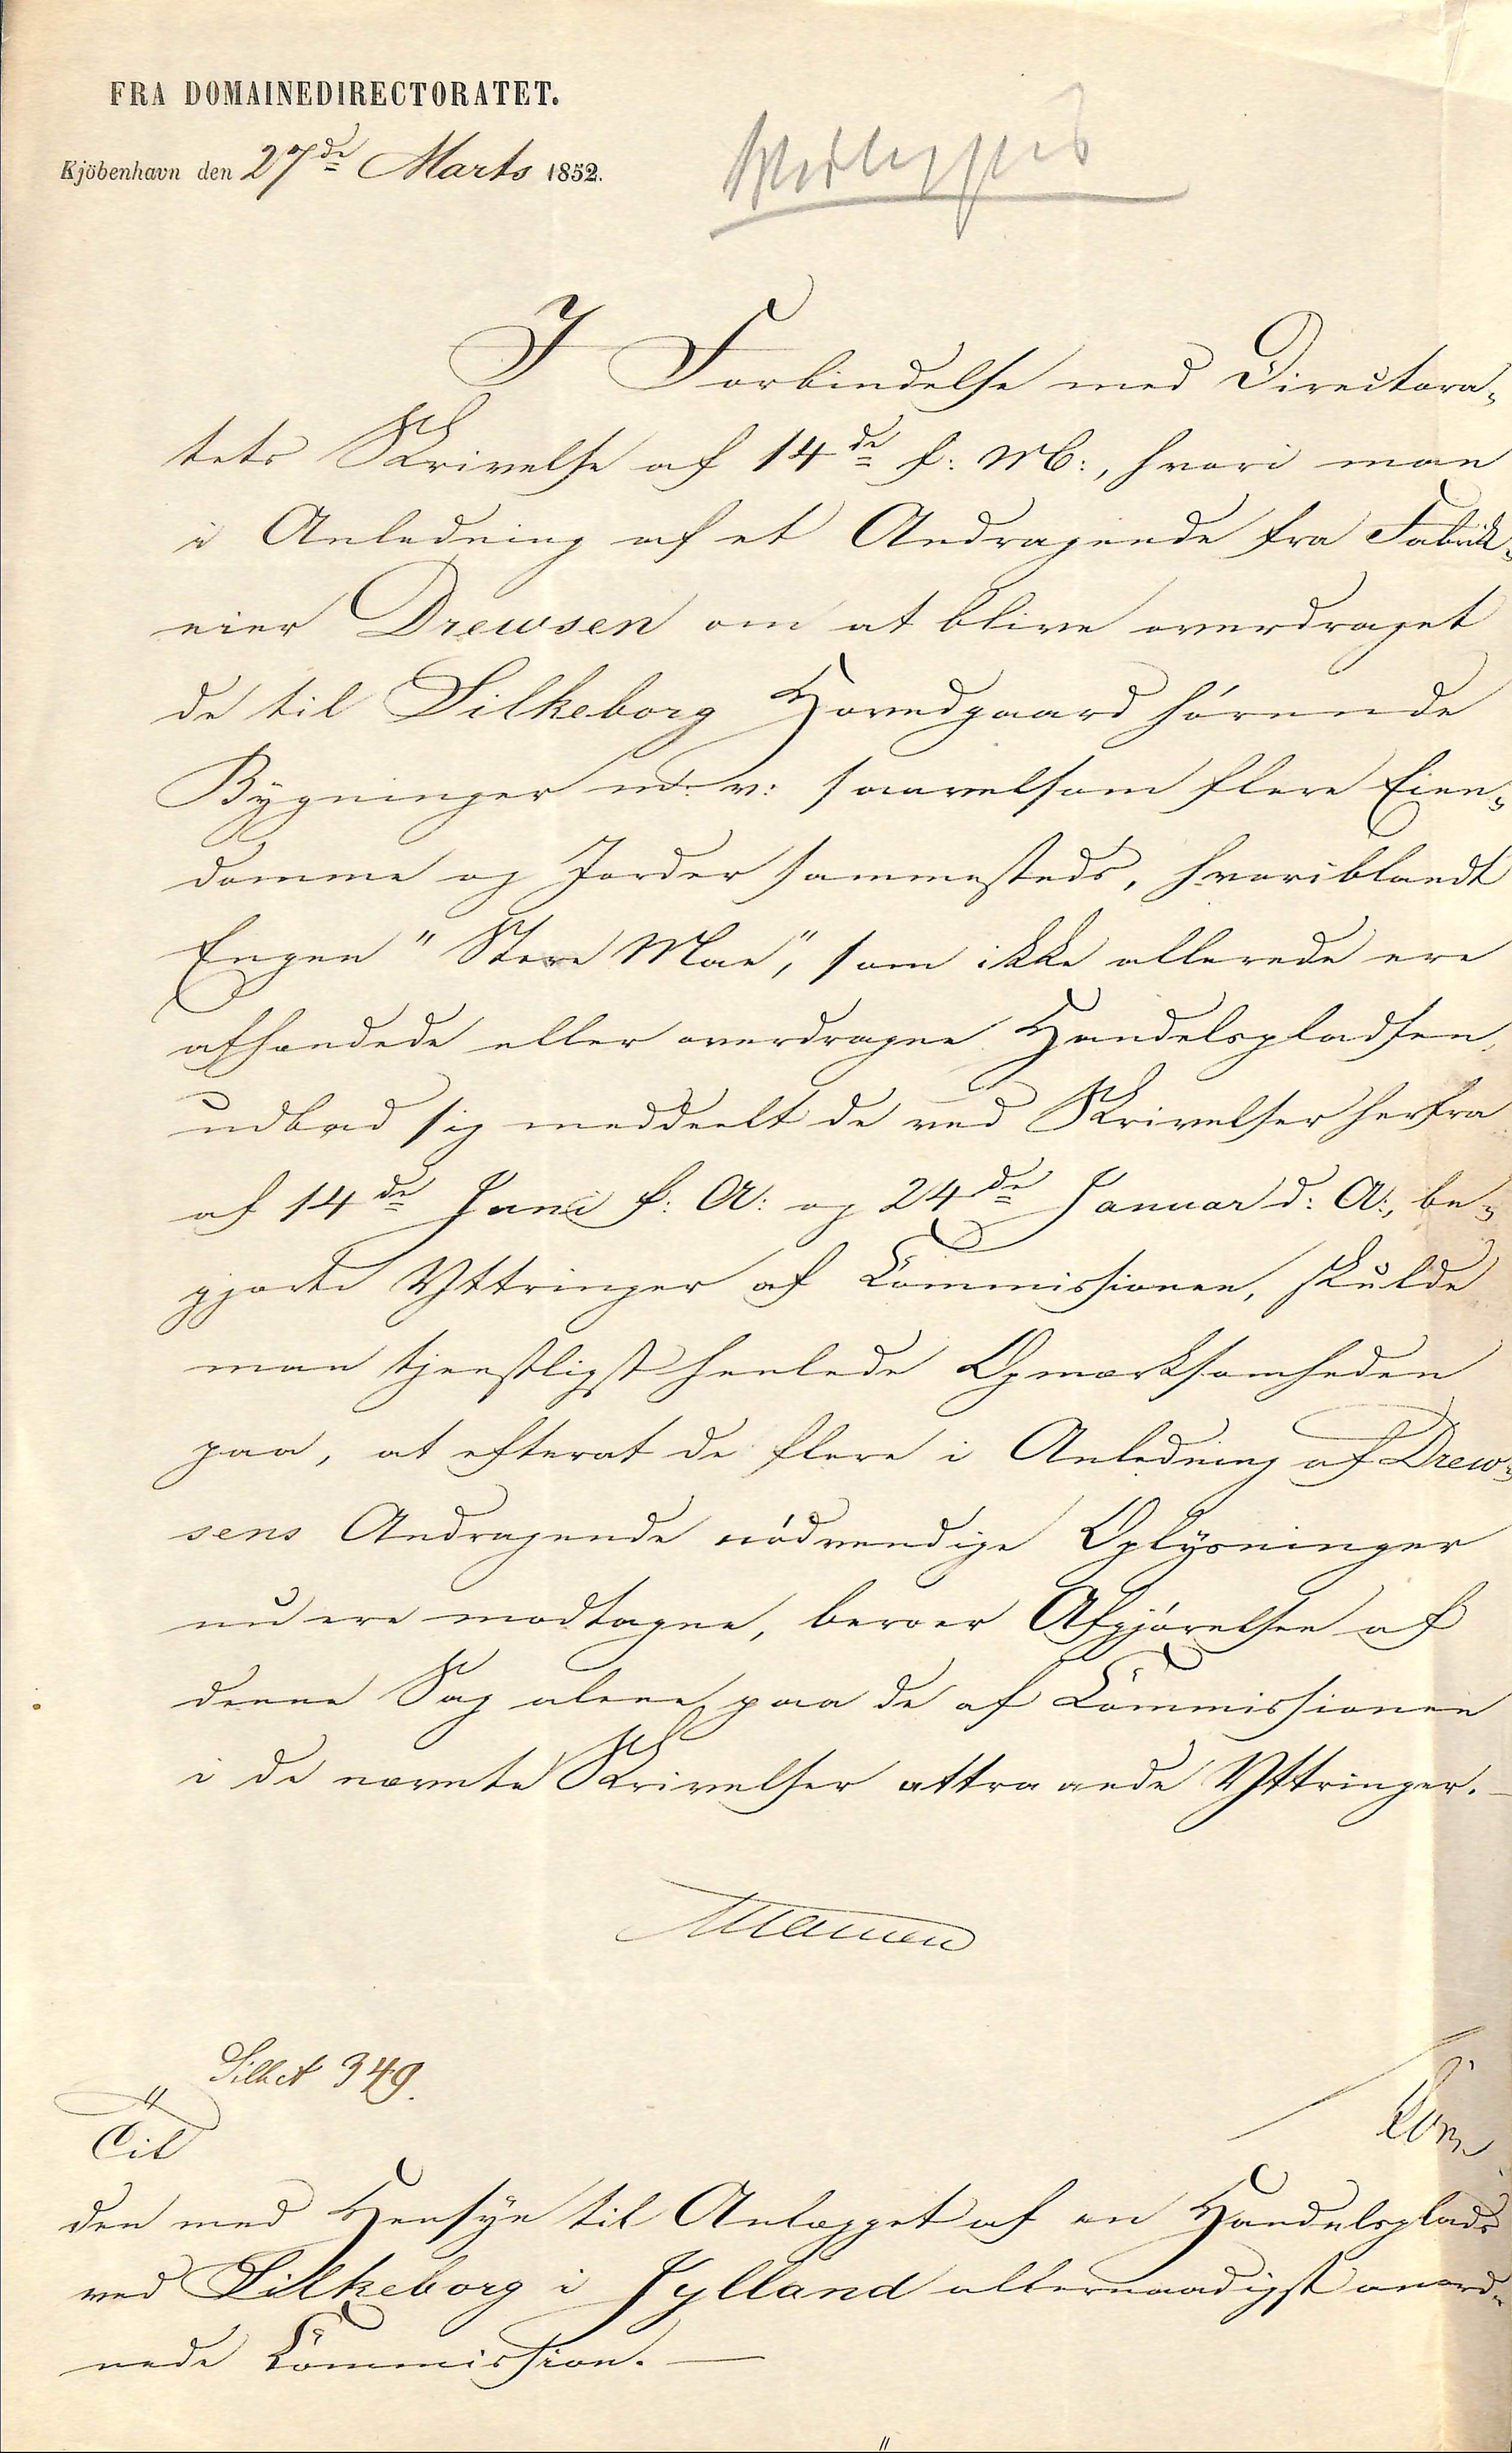 FRA DOMAINEDIRECTORATET.
Kjöbenhavn den 27de Marts 1852.
I Forbindelse med Directora-
tets Skrivelse af 14de f: M:, hvori man
i Anledning af et Andragende fra Fabrik-
eier Drewsen om at blive overdraget
de til Silkeborg Hovedgaard hörende
Bygninger m: v: saavelsom flere Eien-
domme og Jorder sammesteds, hvoriblandt
Engen "Store Mae", som ikke allerede ere
afhændede eller overdragne Handelspladsen,
udbad sig meddeelt de ved Skrivelser herfra
af 14de Juni f: A: og 24de Januar d: A:, be-
gjærte Yttringer af Commissionen, skulde
man tjenstligst henlede Opmærksomheden
paa, at efterat de flere i Anledning af Drew-
sens Andragende nödvendige Oplysninger
nu ere modtagne, beroer Afgjörelsen af
denne Sag alene paa de af Commissionen
i de nævnte Skrivelser attraaede Yttringer. —
Silk A 349.
Til
den med Hensyn til Anlægget af en Handelsplads
ved Silkeborg i Jylland allernaadigst anord-
nede Commission. —